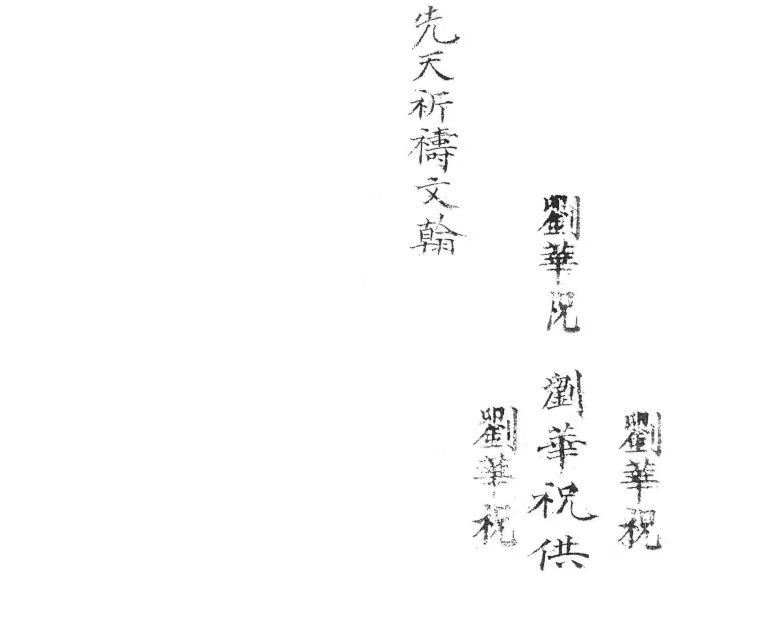 劉華祝
劉華祝
劉華祝供
劉華祝
先天祈禱文翰